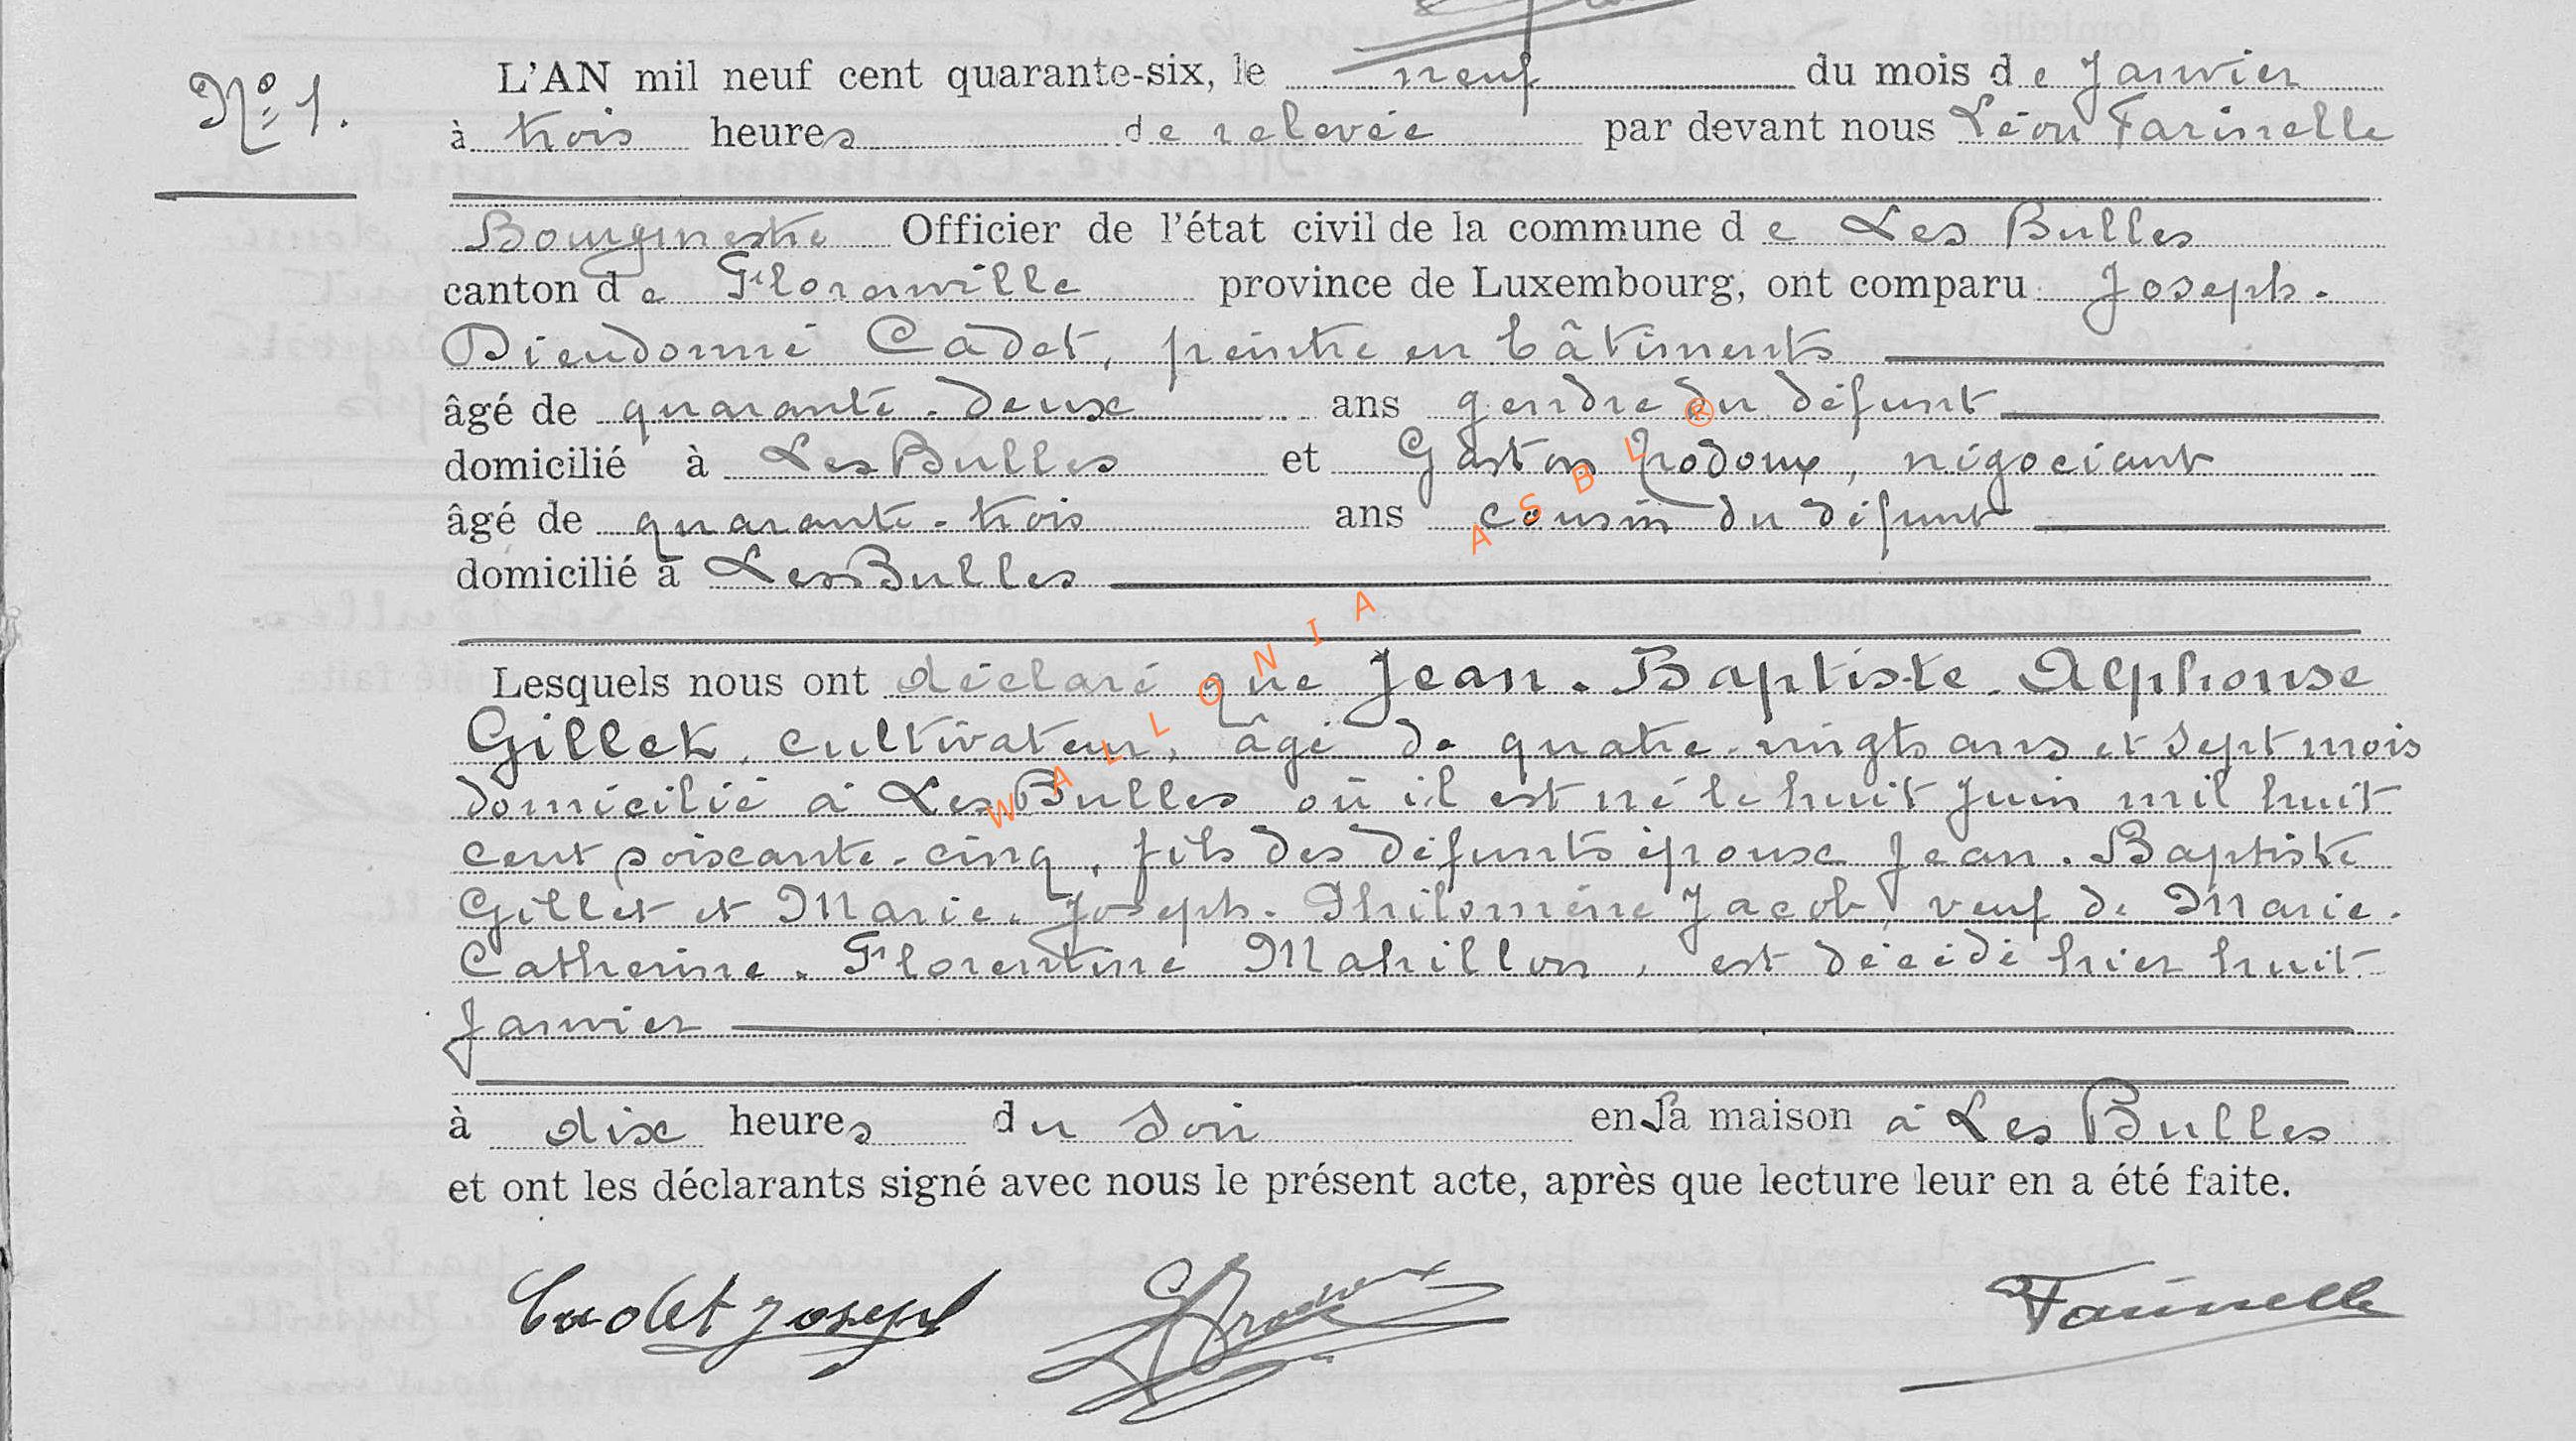 N° 1. L'AN mil neuf cent quarante-six, le neuf du mois de Janvier
à trois heures de relevée par devant nous Léon Farinelle
Bourgmestre Officier de l'état civil de la commune de Les Bulles
canton de Florenville province de Luxembourg, ont comparu Joseph-
Dieudonné Cadet, peintre en bâtiments
âgé de quarante-deux ans gendre du défunt
domicilié à Les Bulles et Gaston , négociant
âgé de quarante-trois ans cousin du défunt
domicilié à Les Bulles
Lesquels nous ont déclaré que Jean-Baptiste-Alphonse
Gillet, cultivateur, âgé de quatre-vingts ans et sept mois
domicilié à Les Bulles où il est né le huit Juin mil huit
cent soixante-cinq, fils des défunts époux Jean-Baptiste
Gillet et Marie-Joseph-Philomène Jacob, veuf de Marie-
Catherine-Florentine Mahillon, est décédé hier huit
Janvier
à dix heures du soir en sa maison à Les Bulles
et ont les déclarants signé avec nous le présent acte, après que lecture leur en a été faite.
Cadet Joseph Farinelle
WALLONIA ASBL ®